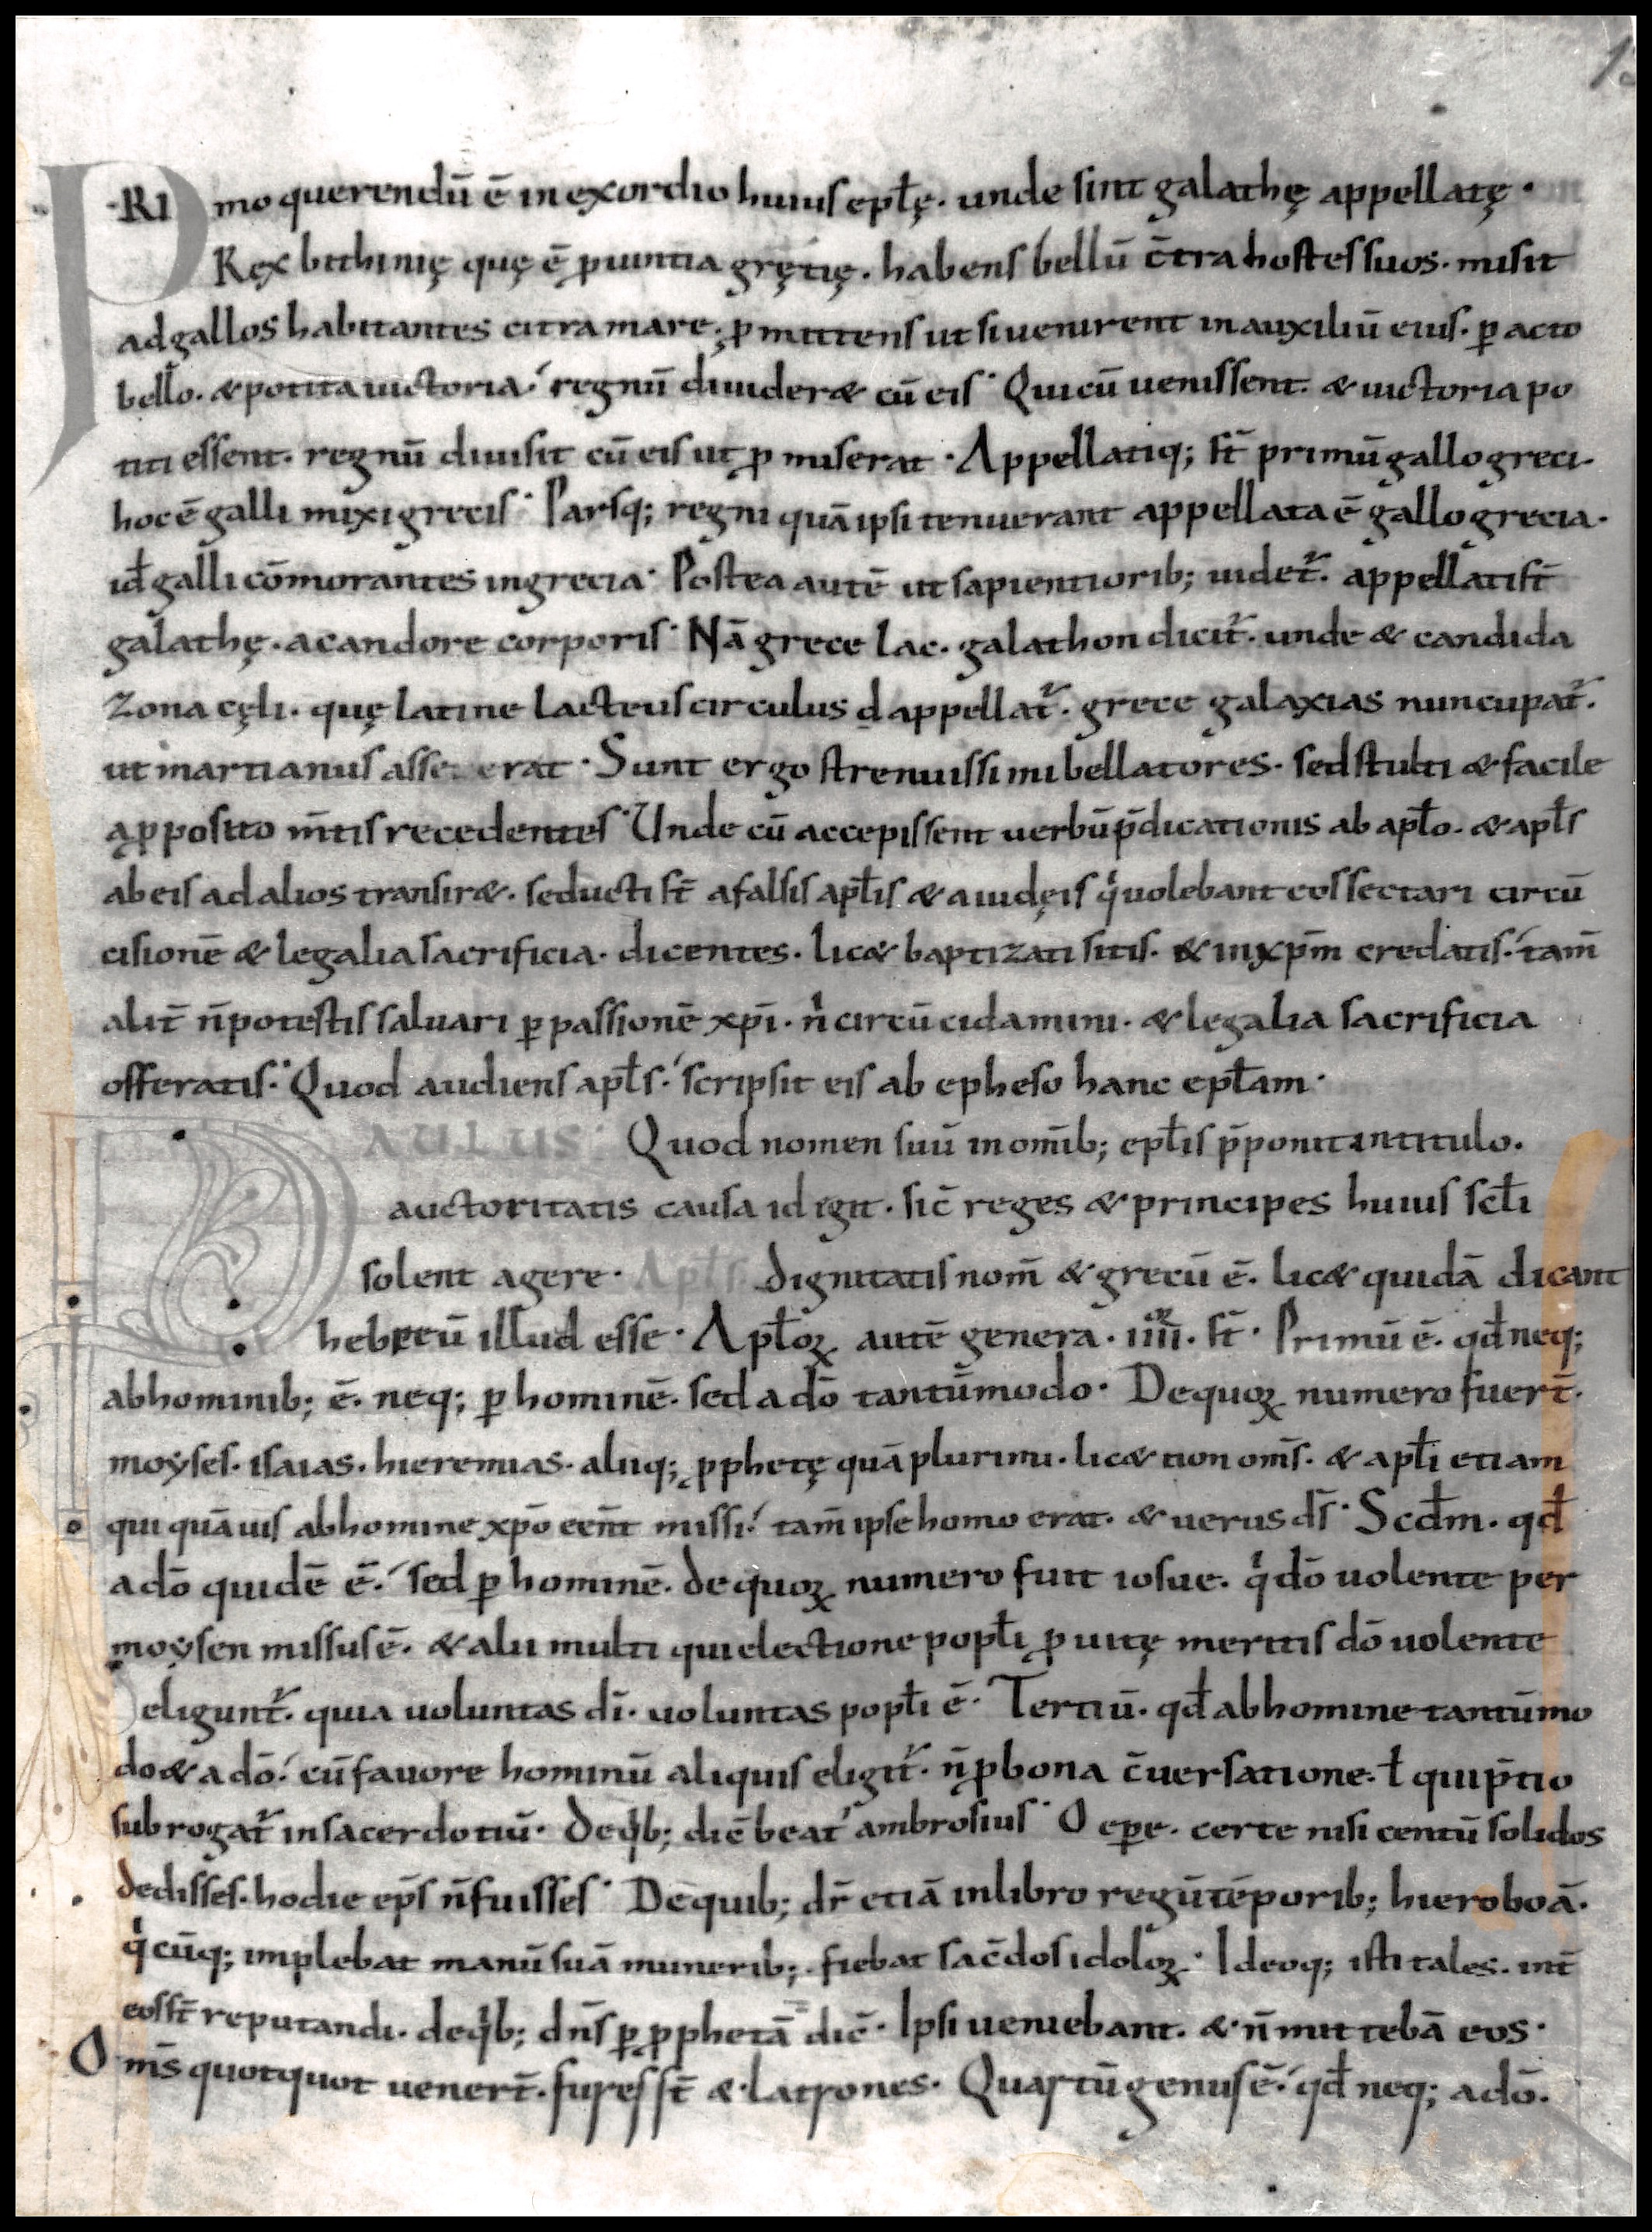 PRImo querendū ē in exordio huius epłę. unde sint galathę appellatę.
Rex bithinię quę ē ꝓuintia grętię. habens bellū c̄tra hostes suos. misit
ad gallos habitantes citra mare. ꝓmittens ut si uenirent in auxiliū eius. ꝑacto
bello. & potita uictoria. regnū diuider& cū eis. Qui cū uenissent. & uictoria po
titi essent. regnū diuisit cū eis ut ꝓmiserat. Appellatiq; st̄ primū gallogreci.
hoc ē galli mixi grecis. Parsq; regni quā ipsi tenuerant appellata ē gallogrecia.
id̄ galli cōmorantes in grecia. Postea autē ut sapientiorib; uidet᷑. appellati st̄
galathę. a candore corporis. Nā grece lac. galathon dicit᷑. unde & candida
zona cęli. quę latine lacteus circulus appellat᷑. grece galaxias nuncupat᷑.
ut martianus asseuerat. Sunt ergo strenuissimi bellatores. sed stulti & facile
a ꝓposito m̄tis recedentes. Unde cū accepissent uerbū p̄dicationis ab apło. & apłs
ab eis ad alios transir&. seducti st̄ a falsis apłis & a iudęis qͥ uolebant eos sectari circū
cisionē & legalia sacrificia. dicentes. lic& baptizati sitis. & in xp̄m credatis. tam̄
alit̄ n̄ potestis saluari ꝑ passionē xp̄i. nͥ circūcidamini. & legalia sacrificia
offeratis. Quod audiens apłs. scripsit eis ab epheso hanc epłam.
PAULUS. Quod nomen suū in om̄ib; epłis p̄ponit in titulo.
auctoritatis causa id egit. sic̄ reges & principes huius scłi
solent agere. Apłs. dignitatis nom̄ & grecū ē. lic& quidā dicant
hebreū illud esse. Apłoꝝ autē genera. iiiior. st̄. Primū ē. qd̄ neq;
ab hominib; ē. neq; ꝑ hominē. sed a dō tantūmodo. De quoꝝ numero fuer̄t.
moẏses. isaias. hieremias. aliiq; ꝓphetę quāplurimi. lic& non om̄s. & apłi etiam
qui quāuis ab homine xp̄o een̄t missi. tam̄ ipse homo erat. & uerus ds̄. Scd̄m. qd̄
a dō quidē ē. sed ꝑ hominē. de quoꝝ numero fuit iosue. qͥ dō uolente per
moẏsen missus ē. & alii multi qui electione popłi ꝓ uitę meritis dō uolente
eligunt᷑. quia uoluntas dī. uoluntas popłi ē. Tertiū. qd̄ ab homine tantūmo
do & a dō. cū fauore hominū aliquis eligit᷑. n̄ ꝓ bona c̄uersatione. ł qui p̄tio
subrogat᷑ in sacerdotiū. De qͥb; dic̄ beat᷒ ambrosius. O epe. certe nisi centū solidos
dedisses. hodie ep̄s n̄ fuisses. De quib; dr̄ etiā in libro regū tēporib; hieroboā.
qͥcūq; implebat manū suā munerib;. fiebat sac̄dos idoloꝝ. Ideoq; isti tales. int̄
eos st̄ reputandi. de qͥb; dn̄s ꝑ ꝓphetā dic̄. Ipsi ueniebant. & n̄ mittebā eos.
Om̄s quotquot uener̄t. fures st̄ & latrones. Quartū genus ē. qd̄ neq; a dō.